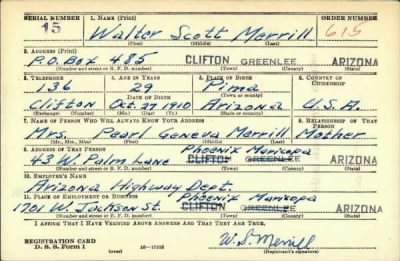 SERIAL NUMBER 1. NAME (Print) ORDER NUMBER
15 Walter Scott Merrill 615
(First) (Middle) (Last)
2. ADDRESS (Print)
P.O. Box 485 CLIFTON GREENLEE ARIZONA
(Number and street or R. F. D. number) (Town) (County) (State)
3. TELEPHONE 4. AGE IN YEARS 5. PLACE OF BIRTH 6. COUNTRY OF CITIZENSHIP
136 29 Pima
DATE OF BIRTH (Town or county)
Clifton Oct. 27 1910 Arizona U.S.A.
(Exchange) (Number) (Mo.) (Day) (Yr.) (State or country)
7. NAME OF PERSON WHO WILL ALWAYS KNOW YOUR ADDRESS 8. RELATIONSHIP OF THAT PERSON
Mrs. Pearl Geneva Merrill Mother
(Mr., Mrs., Miss) (First) (Middle) (Last)
9. ADDRESS OF THAT PERSON Phoenix Maricopa
43 W. Palm Lane CLIFTON GREENLEE ARIZONA
(Number and street or R. F. D. number) (Town) (County) (State)
10. EMPLOYER'S NAME
Arizona Highway Dept.
11. PLACE OF EMPLOYMENT OR BUSINESS Phoenix Maricopa
1701 W. Jackson St. CLIFTON GREENLEE ARIZONA
(Number and street or R. F. D. number) (Town) (County) (State)
I AFFIRM THAT I HAVE VERIFIED ABOVE ANSWERS AND THAT THEY ARE TRUE.
REGISTRATION CARD
D. S. S. Form 1 (over) 16—17105 W. S. Merrill
(Registrant's signature)